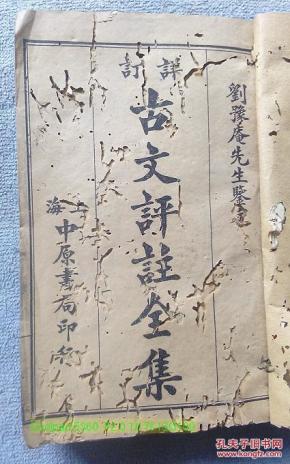 劉豫庵先生鑒定
評訂
古文評註全集
上海
中原書局印行
孔夫子旧书网